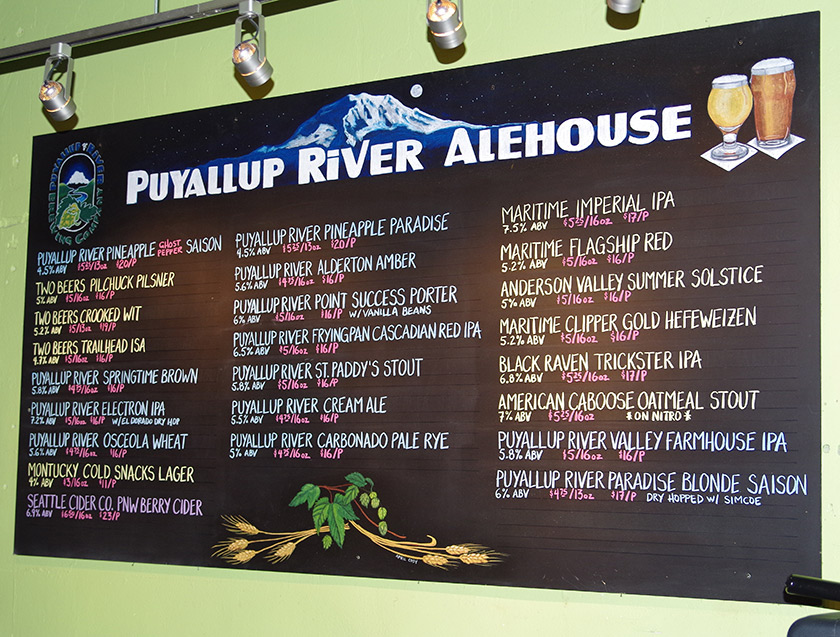 PUYALLUP RiVER ALEHOUSE
PUYALLUP RIVER
BREWING COMPANY
PUYALLUP RIVER PINEAPPLE GHOST PEPPER SAISON
4.5% ABV $5.25/13oz $20/P
TWO BEERS PILCHUCK PILSNER
5% ABV $5/16oz $16/P
TWO BEERS CROOKED WIT
5.2% ABV $5/13oz $19/P
TWO BEERS TRAILHEAD ISA
4.7% ABV $5/16oz $16/P
PUYALLUP RIVER SPRINGTIME BROWN
5.8% ABV $4.75/16oz $16/P
PUYALLUP RIVER ELECTRON IPA
7.2% ABV $5/16oz $16/P W/EL DORADO DRY HOP
PUYALLUP RIVER OSCEOLA WHEAT
5.6% ABV $4.75/16oz $16/P
MONTUCKY COLD SNACKS LAGER
4% ABV $3/16oz $11/P
SEATTLE CIDER CO. PNW BERRY CIDER
6.9% ABV /16oz $23/P
PUYALLUP RIVER PINEAPPLE PARADISE
4.5% ABV $5.25/13oz $20/P
PUYALLUP RIVER ALDERTON AMBER
5.6% ABV $4.75/16oz $16/P
PUYALLUP RIVER POINT SUCCESS PORTER
6% ABV $5/16oz $16/P W/ VANILLA BEANS
PUYALLUP RIVER FRYINGPAN CASCADIAN RED IPA
6.5% ABV $5/16oz $16/P
PUYALLUP RIVER ST. PADDY'S STOUT
5.8% ABV $5/16oz $16/P
PUYALLUP RIVER CREAM ALE
5.5% ABV $4.75/16oz $16/P
PUYALLUP RIVER CARBONADO PALE RYE
5% ABV $4.75/16oz $16/P
MARITIME IMPERIAL IPA
7.5% ABV $5.25/16oz $17/P
MARITIME FLAGSHIP RED
5.2% ABV $5/16oz $16/P
ANDERSON VALLEY SUMMER SOLSTICE
5% ABV $5/16oz $16/P
MARITIME CLIPPER GOLD HEFEWEIZEN
5.2% ABV $5/16oz $16/P
BLACK RAVEN TRICKSTER IPA
6.8% ABV $5.25/16oz $17/P
AMERICAN CABOOSE OATMEAL STOUT
7% ABV $5.25/16oz * ON NITRO *
PUYALLUP RIVER VALLEY FARMHOUSE IPA
5.8% ABV $5/16oz $16/P
PUYALLUP RIVER PARADISE BLONDE SAISON
6% ABV $4.75/13oz $17/P DRY HOPPED W/ SIMCOE